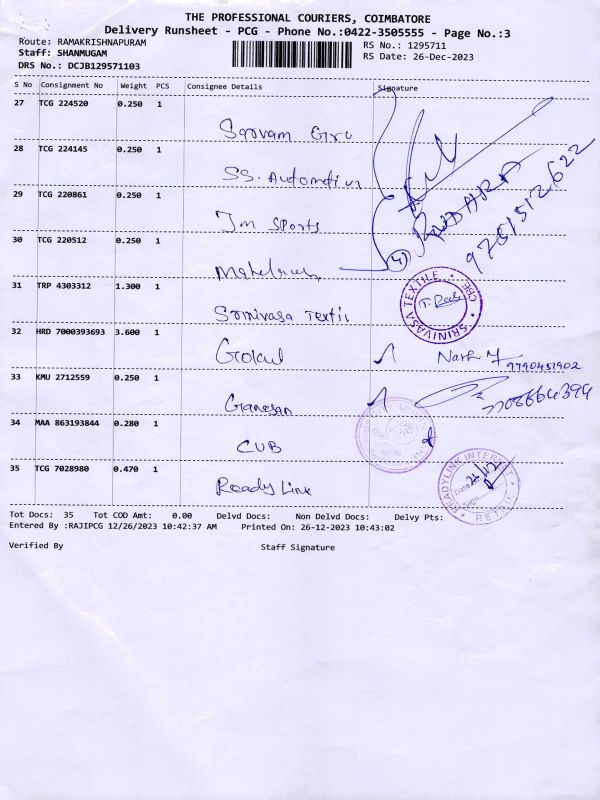 THE PROFESSIONAL COURIERS, COIMBATORE
Delivery Runsheet - PCG - Phone No.:0422-3505555 - Page No.:3
Route: RAMAKRISHNAPURAM
RS No.: 1295711
Staff: SHANMUGAM
RS Date: 26-Dec-2023
DRS No.: DCJB129571103
S No Consignment No Weight PCS Consignee Details Signature
27 TCG 224520 0.250 1
Sarvam
28 TCG 224145 0.250 1
SS. Automotive
29 TCG 220861 0.250 1
9751512622
Jm Sports
30 TCG 220512 0.250 1
4)
31 TRP 4303312 1.300 1
SRINIVASA TEXTILE CBE
Srinivasa Textil
32 HRD 7000393693 3.600 1
Gokul
9790451902
33 KMU 2712559 0.250 1
Ganesan
34 MAA 863193844 0.280 1
CUB
35 TCG 7028980 0.470 1
Ready Link
READYLINK INTERNET
Tot Docs: 35 Tot COD Amt: 0.00 Delvd Docs: Non Delvd Docs: Delvy Pts:
Entered By :RAJIPCG 12/26/2023 10:42:37 AM Printed On: 26-12-2023 10:43:02
Verified By Staff Signature